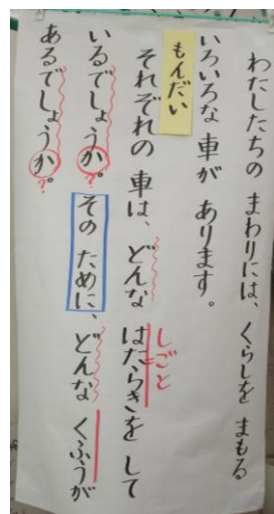 わたしたちの まわりには、くらしを まもる
いろいろな 車が あります。
もんだい
それぞれの 車は、どんな はたらきを して
しごと
いるでしょうか。 そのために、どんな くふうが
?
あるでしょうか。
?